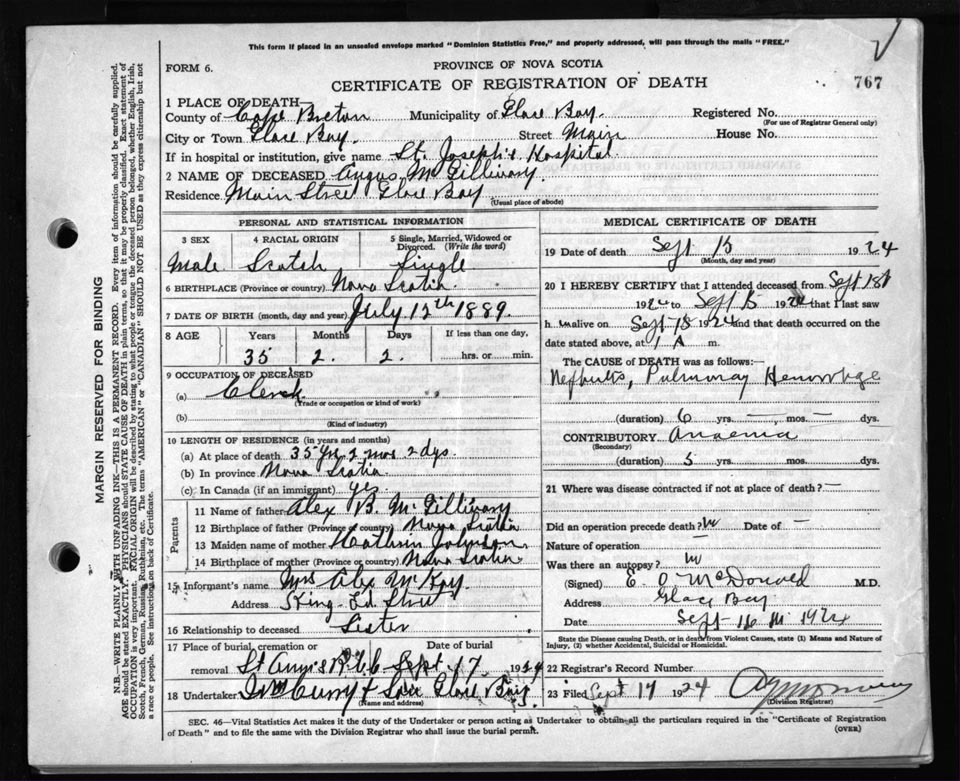 This form if placed in an unsealed envelope marked "Dominion Statistics Free," and properly addressed, will pass through the mails "FREE."
FORM 6.
PROVINCE OF NOVA SCOTIA
CERTIFICATE OF REGISTRATION OF DEATH
767
1 PLACE OF DEATH—
County of Cape Breton Municipality of Glace Bay. Registered No.
(For use of Registrar General only)
City or Town Glace Bay. Street Main House No.
If in hospital or institution, give name St. Joseph's Hospital
2 NAME OF DECEASED Angus McGillivary.
Residence Main Street Glace Bay
(Usual place of abode)
PERSONAL AND STATISTICAL INFORMATION
3 SEX
4 RACIAL ORIGIN
5 Single, Married, Widowed or Divorced. (Write the word)
Male Scotch Single
6 BIRTHPLACE (Province or country) Nova Scotia
7 DATE OF BIRTH (month, day and year) July 12th 1889.
8 AGE Years Months Days If less than one day,
35 2 2 hrs. or min.
9 OCCUPATION OF DECEASED
(a) Clerk
(Trade or occupation or kind of work)
(b)
(Kind of industry)
10 LENGTH OF RESIDENCE (in years and months)
(a) At place of death 35 Yrs 2 mos 2 dys.
(b) In province Nova Scotia
(c) In Canada (if an immigrant) yes.
Parents
11 Name of father Alex B. McGillivary
12 Birthplace of father (Province or country) Nova Scotia
13 Maiden name of mother Kathrin Johnson
14 Birthplace of mother (Province or country) Nova Scotia
15 Informant's name Mrs Alex McKay
Address King Ed. Street
16 Relationship to deceased Sister
17 Place of burial, cremation or removal Date of burial
St Ann's R.C.C Sept. 17 1924
18 Undertaker Curry & Son Glace Bay.
(Name and address)
MEDICAL CERTIFICATE OF DEATH
19 Date of death Sept 15 1924
(Month, day and year)
20 I HEREBY CERTIFY that I attended deceased from Sept 1st
1924 to Sept 15 1924 that I last saw
h im alive on Sept 15 1924 and that death occurred on
date stated above, at 1 A m.
The CAUSE of DEATH was as follows:
Nephritis, Pulmonary Hemorrhage
(duration) 6 yrs. — mos. — dys.
CONTRIBUTORY Anaemia
(Secondary)
(duration) 5 yrs. mos. dys.
21 Where was disease contracted if not at place of death? —
Did an operation precede death? No Date of —
Nature of operation —
Was there an autopsy? No
(Signed) E. O. McDonald M.D.
Address Glace Bay
Date Sept 16 1924
State the Disease causing Death, or in death from Violent Causes, state (1) Means and Nature of Injury, (2) whether Accidental, Suicidal or Homicidal.
22 Registrar's Record Number
23 Filed Sept 17 1924
(Division Registrar)
SEC. 46—Vital Statistics Act makes it the duty of the Undertaker or person acting as Undertaker to obtain all the particulars required in the "Certificate of Registration
of Death" and to file the same with the Division Registrar who shall issue the burial permit.
(OVER)
MARGIN RESERVED FOR BINDING
N.B.—WRITE PLAINLY WITH UNFADING INK—THIS IS A PERMANENT RECORD. Every item of information should be carefully supplied.
AGE should be stated EXACTLY. PHYSICIANS should STATE CAUSE OF DEATH in plain terms, so that it may be properly classified. Exact statement of
OCCUPATION is very important. RACIAL ORIGIN will be described by stating to what people or tongue the deceased person belonged, whether English, Irish,
Scotch, French, German, Russian, Ruthenian, etc. The terms "AMERICAN" or "CANADIAN" SHOULD NOT BE USED as they express citizenship but not
a race or people. See instructions on back of Certificate.